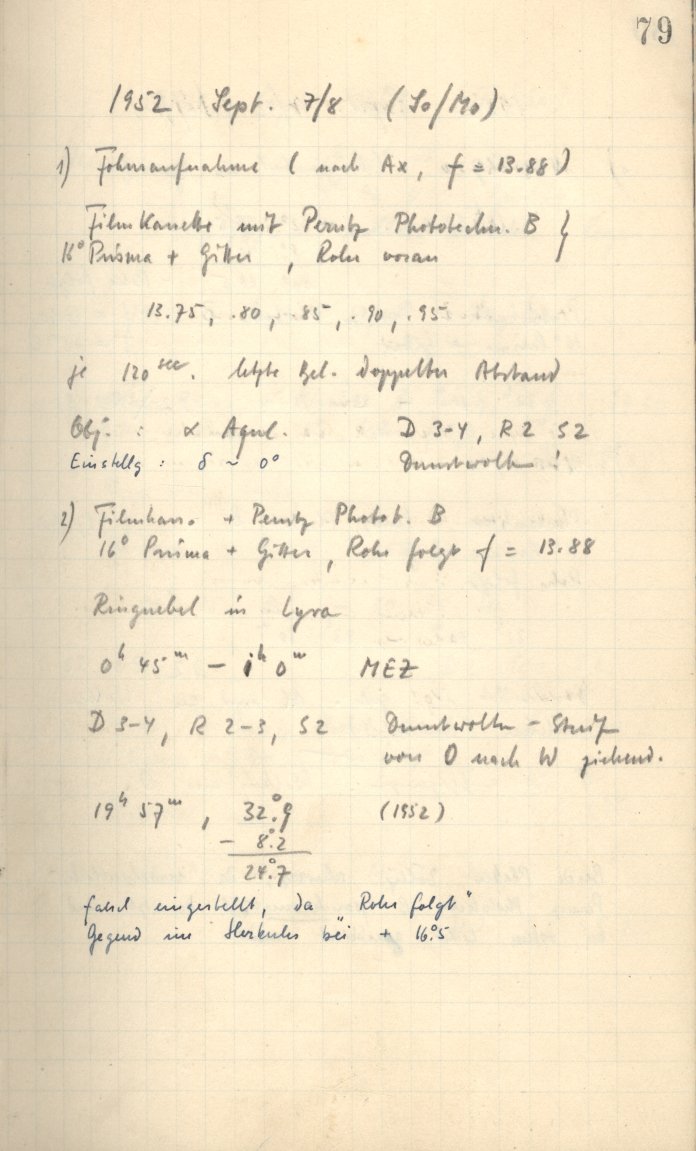 79
1952 Sept. 7/8 (So/Mo)
1) Fokusaufnahme (nach Ax, f = 13.88)
Filmkassette mit Perutz Phototechn. B }
16° Prisma + Gitter, Rohr voran
13.75, .80, .85, .90, .95
je 120 sec. letzte Bel. doppelter Abstand
Obj. : α Aqul. D 3-4, R 2 S2
Einstellg : δ ~ 0° Dunstwolken !
2) Filmkass. + Perutz Photot. B
16° Prisma + Gitter, Rohr folgt f = 13.88
Ringnebel in Lyra
0h 45m - 1h 0m MEZ
D 3-4, R 2-3, S2 Dunstwolken - Streif
von O nach W ziehend.
19h 57m, 32°.9 (1952)
- 8°.2
24°.7
falsch eingestellt, da "Rohr folgt"
Gegend im Herkules bei + 16°.5